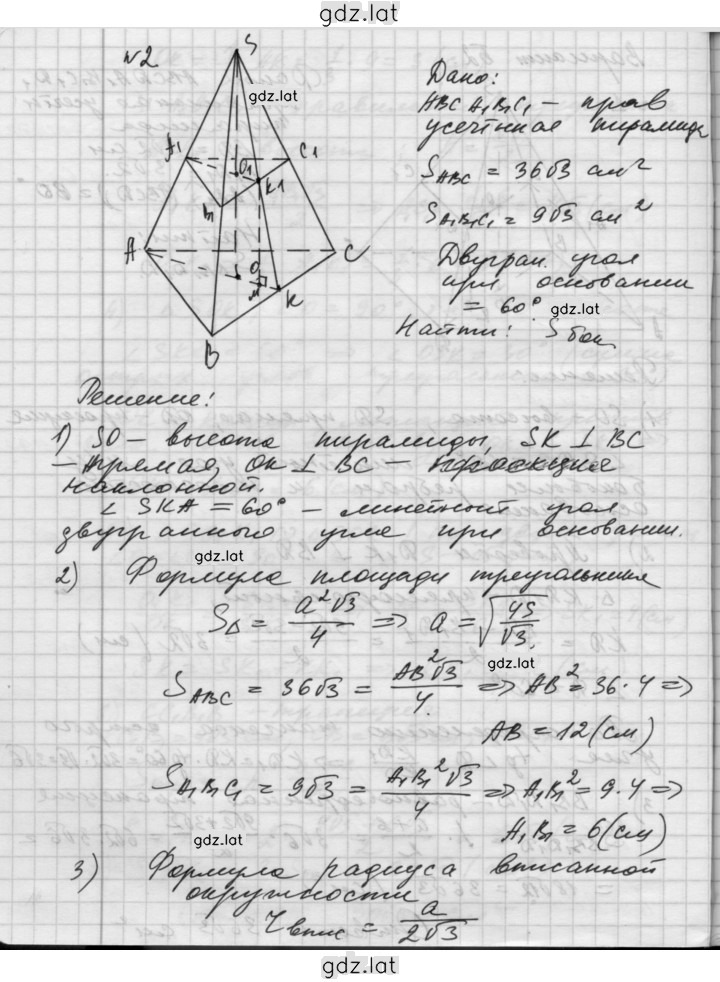 gdz.lat
№2
S
gdz.lat
A₁
C₁
O₁
K₁
B₁
A
C
O
M
K
B
Дано:
ABC A₁B₁C₁ – прав
усечённая пирамида
S_ABC = 36√3 см²
S_A₁B₁C₁ = 9√3 см²
Двугран. угол
при основании
= 60°.
gdz.lat
Найти: Sбок
Решение:
1) SO – высота пирамиды, SK ⊥ BC
– прямая, OK ⊥ BC – проекция
наклонной.
∠ SKA = 60° – линейный угол
двугранного угла при основании.
gdz.lat
2) Формула площади треугольника
S△ = a²√3/4 ⇒ a = √(4S/√3).
gdz.lat
S_ABC = 36√3 = AB²√3/4 ⇒ AB² = 36·4 ⇒
AB = 12 (см)
S_A₁B₁C₁ = 9√3 = A₁B₁²√3/4 ⇒ A₁B₁² = 9·4 ⇒
A₁B₁ = 6 (см)
gdz.lat
3) Формула радиуса вписанной
окружности
r впис = a/2√3
gdz.lat